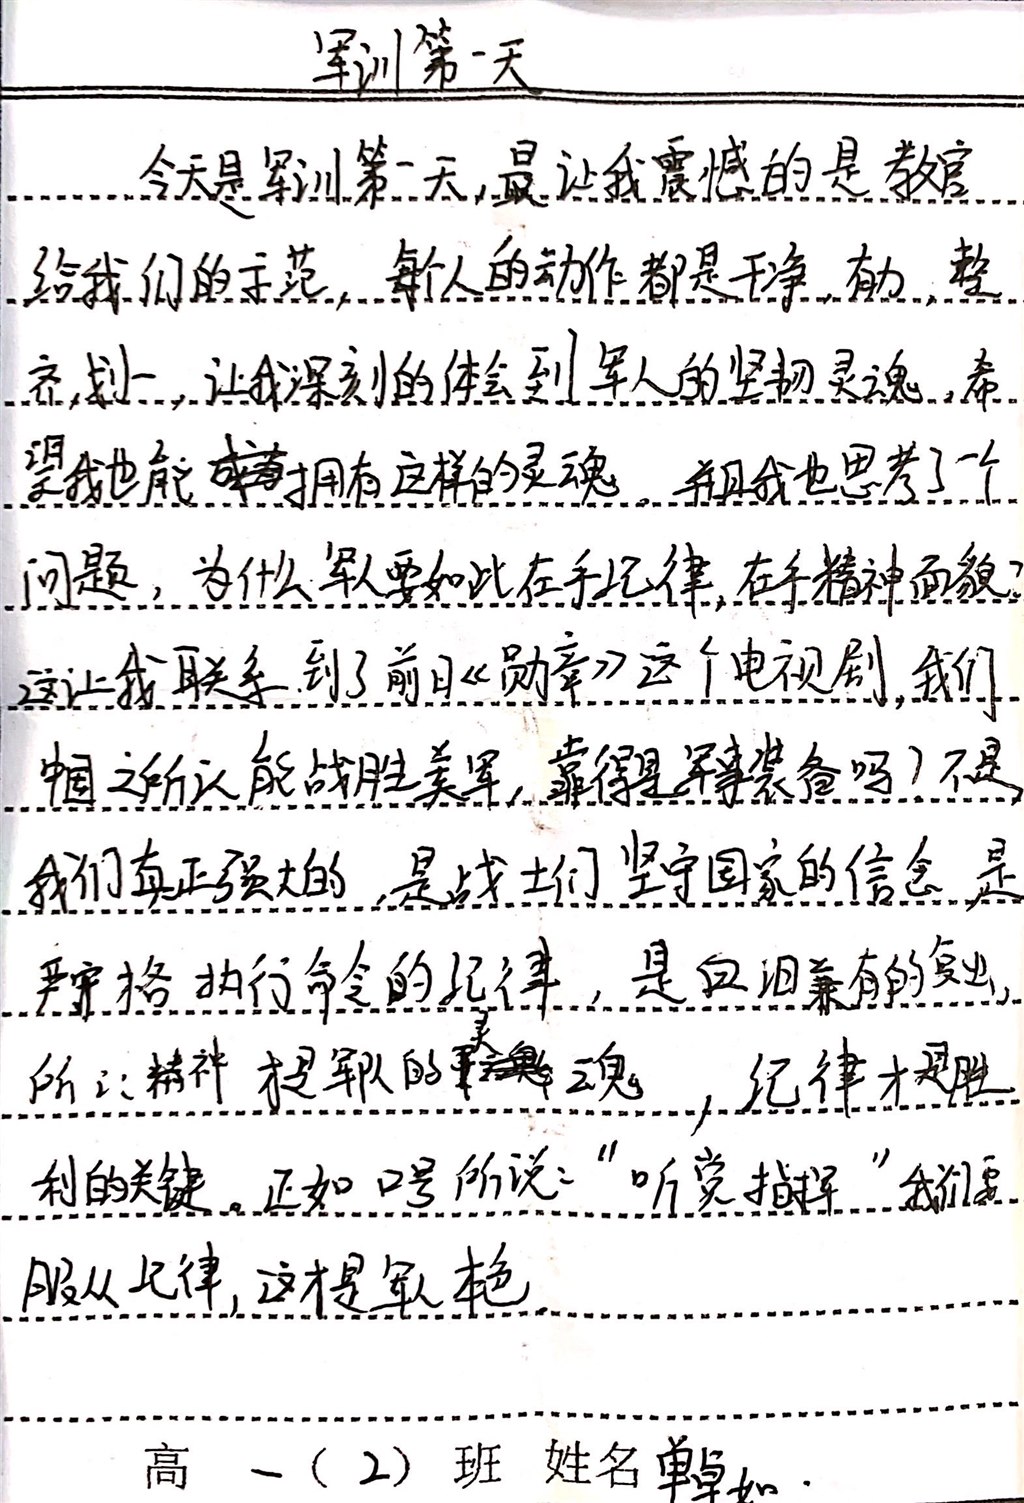 军训第一天
今天是军训第一天,最让我震憾的是教官
给我们的示范,每个人的动作都是干净,有力,整
齐,划一,让我深刻的体会到军人的坚韧灵魂,希
望我也能拥有这样的灵魂。并且我也思考了一个
问题,为什么军人要如此在乎纪律,在乎精神面貌?
这让我联系到了前日《勋章》这个电视剧,我们
中国之所以能战胜美军,靠得是军事装备吗?不是,
我们真正强大的,是战士们坚守国家的信念,是
严守格执行命令的纪律,是血泪兼有的付出,
所以精神才是军队的灵魂,纪律才是胜
利的关键。正如口号所说:"听党指挥"我们要
服从纪律,这才是军人本色
高一(2)班 姓名单卓如.